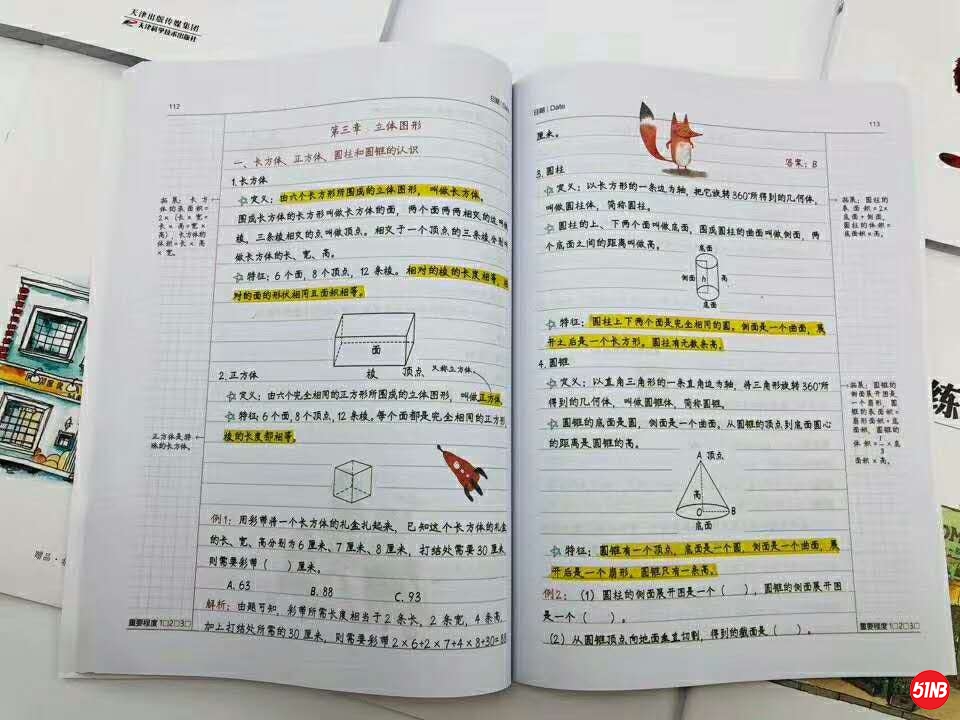 天津出版传媒集团
天津科学技术出版社
112
日期
第三章 立体图形
一、长方体、正方体、圆柱和圆锥的认识
1.长方体
☆定义：由六个长方形所围成的立体图形，叫做长方体。
围成长方体的长方形叫做长方体的面，两个面两两相交的边叫做
棱，三条棱相交的点叫做顶点。相交于一个顶点的三条棱分别叫
做长方体的长、宽、高。
☆特征：6个面，8个顶点，12条棱。相对的棱的长度相等，相
对的面的形状相同且面积相等。
拓展：长方
体的表面积=
2×(长×宽+
长×高+宽×
高)，长方体的
体积=长×高
×宽。
面
棱
顶点
又称立方体
2.正方体
☆定义：由六个完全相同的正方形所围成的立体图形，叫做正方体。
☆特征：6个面，8个顶点，12条棱。每个面都是完全相同的正方形，
棱的长度都相等。
正方体是特
殊的长方体。
例1：用彩带将一个长方体的礼盒扎起来，已知这个长方体的礼盒
的长、宽、高分别为6厘米、7厘米、8厘米，打结处需要30厘米
则需要彩带（ ）厘米。
A.63
B.88
C.93
解析：由题可知，彩带所需长度相当于2条长，2条宽，4条高，
加上打结处所需的30厘米，则需要彩带2×6+2×7+4×8+30=88
重要程度 1□2□3□
日期 | Date
113
厘米。
答案：B
3.圆柱
☆定义：以长方形的一条边为轴，把它旋转360°所得到的几何体，
叫做圆柱体，简称圆柱。
☆圆柱的上、下两个面叫做底面，围成圆柱的曲面叫做侧面，两
个底面之间的距离叫做高。
拓展：圆柱的
表面积=2×
底面+侧面，
圆柱的体积=
底面积×高。
底面
侧面
h
高
底面
☆特征：圆柱上下两个面是完全相同的圆，侧面是一个曲面，展
开之后是一个长方形。圆柱有无数条高。
4.圆锥
☆定义：以直角三角形的一条直角边为轴，将三角形旋转360°所
得到的几何体，叫做圆锥体，简称圆锥。
☆圆锥的底面是圆，侧面是一个曲面，从圆锥的顶点到底面圆心
的距离是圆锥的高。
拓展：圆锥的
侧面展开图是
一个扇形，圆
锥的表面积=
扇形面积+底
面积，圆锥的
体积=1/3×底
面积×高。
A 顶点
高
O
B
底面
☆特征：圆锥有一个顶点，底面是一个圆，侧面是一个曲面，展
开后是一个扇形。圆锥只有一条高。
例2：（1）圆柱的侧面展开图是一个（ ），圆锥的侧面展开图
是一个（ ）。
（2）从圆锥顶点向地面垂直切割，得到的截面是（ ）。
重要程度 1□2□3□
练
赠品·
51NB